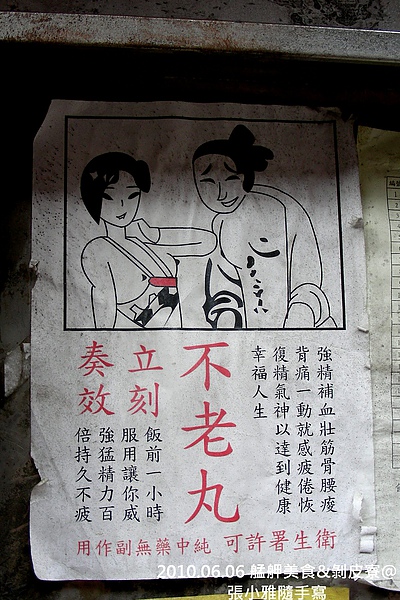 強精補血壯筋骨腰痠
背痛一動就感疲倦恢
復精氣神以達到健康
幸福人生
不老丸
立刻
奏效
飯前一小時
服用讓你威
強猛精力百
倍持久不疲
衛生署許可 純中藥無副作用
2010.06.06 艋舺美食&剝皮寮@
張小雅隨手寫